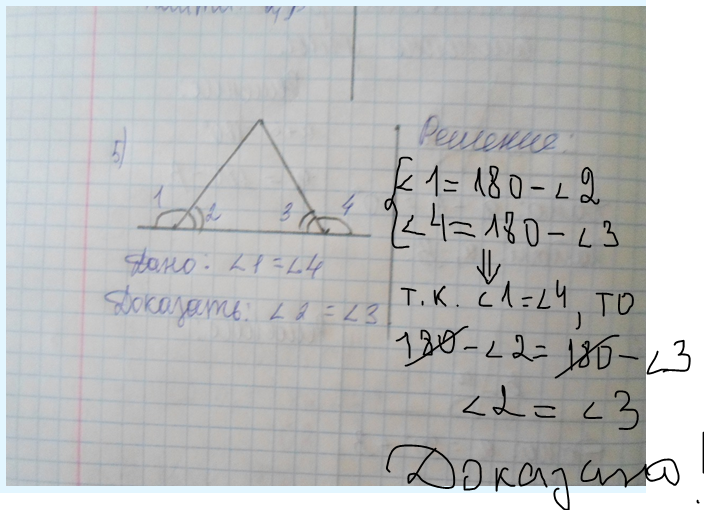 5)
1 2 3 4
Дано: ∠1=∠4
Доказать: ∠2=∠3
Решение:
∠1=180-∠2
∠4=180-∠3
⇓
т.к. ∠1=∠4, то
180-∠2=180-∠3
∠2=∠3
Доказано!